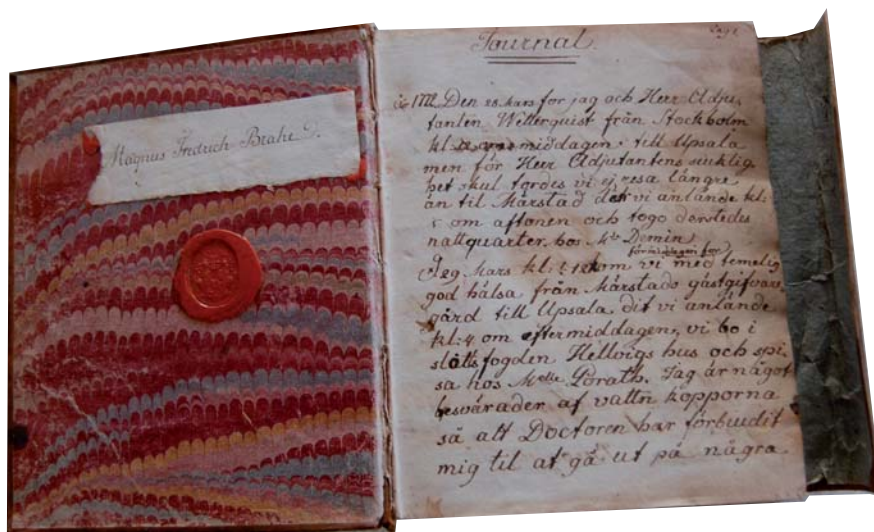 Magnus Fredrich Brahe
Journal.
Den 28 Mars for jag och Herr Adju,
tanten Wetterquist från Stockholm
kl: middagen till Upsala
men för Herr Adjutantens siuklig
het skul tordes vi ej resa längre
än til Mårstad der vi anlände kl:
5 om aftonen och togo derstedes
nattquarter hos Demin
förmiddagen for
Mars kl: vi med temelig
god hälsa från Mårstads gästgifvare,
gård till Upsala, dit vi anlände
kl: 4 om eftermiddagen, vi bo i
slåttsfogden Hellvigs hus och spi,
sa hos Melle Porath. Jag är något
besvärader af vattn kopporna
så att Doctoren har förbiudit
mig til at gå ut på några